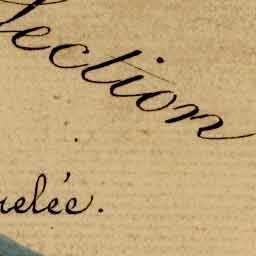 Section
uelée.